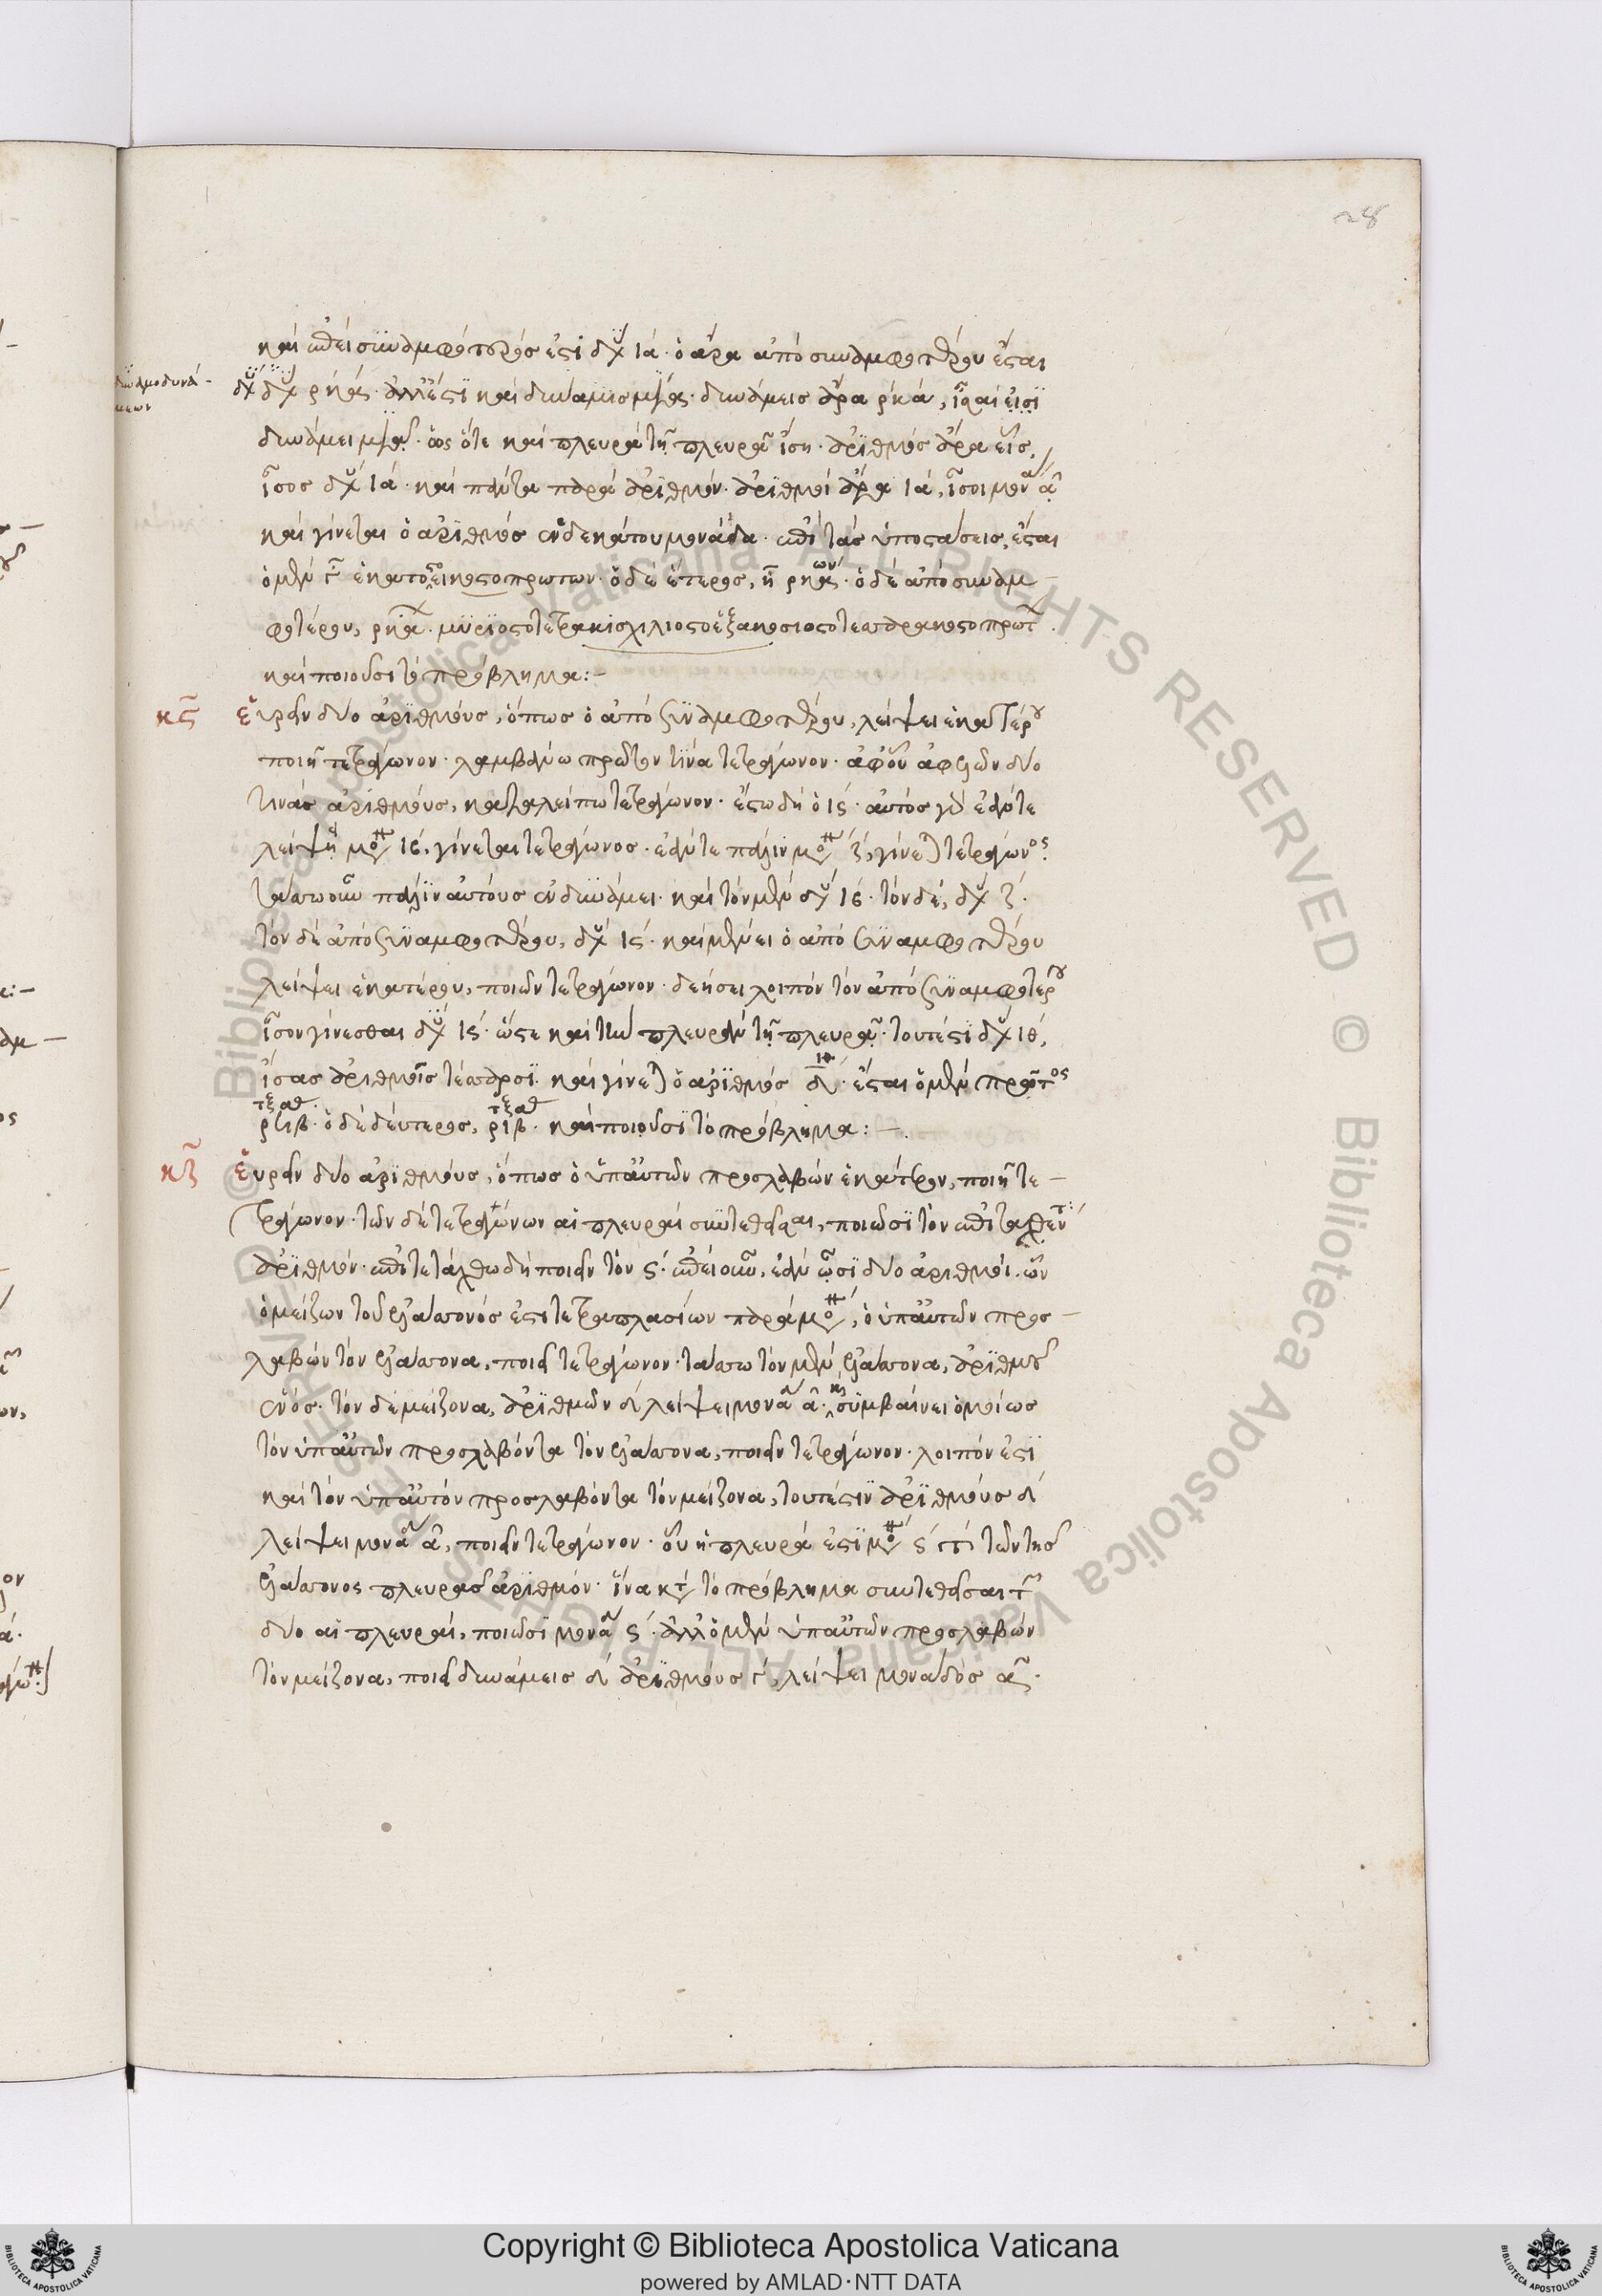 28
καὶ ἐπεὶ συναμφότερός ἐστι δυ ια· ὁ ἄρα ἀπὸ συναμφοτέρου ἔσται
δυναμοδυνά-
μεων
δυ δυ ρκα· ἀλλ' ἔστι καὶ δυνάμις μιᾶς· δυνάμεις ἄρα ρκα, ἴσαι εἰσὶ
δυνάμει μιᾷ· ὥς ὅτε καὶ πλευρὰ τῇ πλευρᾷ ἴση· ἀριθμὸς ἄρα εἷς,
ἴσος δυ ια· καὶ πάντα παρὰ ἀριθμόν· ἀριθμοὶ ἄρα ια, ἴσοι μον α
καὶ γίνεται ὁ ἀριθμὸς ἑνδεκάτου μονάδα· ἐπὶ τὰς ὑποστάσεις, ἔσται
ὁ μὲν ἑκατοεικοστοπρώτων· ὁ δὲ ἕτερος, η ρκα ων· ὁ δὲ ἀπὸ συναμ-
φοτέρου, ρκα μυριοστοτετρακισχιλιοστοεξακοσιοστοτεσσαρακοστοπρωτ
καὶ ποιοῦσι τὸ πρόβλημα:-
κς Εὑρεῖν δύο ἀριθμούς, ὅπως ὁ ἀπὸ συναμφοτέρου, λείψει ἑκατέρου
ποιῇ τετράγωνον· λαμβάνω πρῶτον τινα τετράγωνον· ἀφ' οὗ ἀφελὼν δύο
τινὰς ἀριθμούς, καταλείπω τετράγωνον· ἔστω δὴ ὁ ις· αὐτὸς γὰρ ἐάν τε
λείψῃ μο ιε, γίνεται τετράγωνος· ἐάν τε πάλιν μο ζ, γίνεται τετράγωνος
τάσσω οὖν πάλιν αὐτοὺς ἐν δυνάμει· καὶ τὸν μὲν δυ ιε· τὸν δὲ, δυ ζ·
τὸν δὲ ἀπὸ συναμφοτέρου, δυ ις· καὶ μένει ὁ ἀπὸ συναμφοτέρου
λείψει ἑκατέρου, ποιῶν τετράγωνον· δεήσει λοιπὸν τὸν ἀπὸ συναμφοτέρου
ἴσον γίνεσθαι δυ ις· ὥστε καὶ τὴν πλευρὰν τῇ πλευρᾷ· τουτέστι δυ ιθ,
ἴσας ἀριθμοῖς τέσσαρσι· καὶ γίνεται ὁ ἀριθμὸς δ ιθ· ἔσται ὁ μὲν πρῶτος
ρϟβ τξα· ὁ δὲ δεύτερος, ριβ τξα· καὶ ποιοῦσι τὸ πρόβλημα:-
κζ Εὑρεῖν δύο ἀριθμούς, ὅπως ὁ ὑπ' αὐτῶν προσλαβὼν ἑκάτερον, ποιῇ τε-
τράγωνον· τῶν δὲ τετραγώνων αἱ πλευραὶ συντεθεῖσαι, ποιῶσι τὸν ἐπιταχθέντ
ἀριθμόν· ἐπιτετάχθω δὴ ποιεῖν τὸν ς· ἐπεὶ οὖν, ἐὰν ὦσι δύο ἀριθμοί· ὧν
ὁ μείζων τοῦ ἐλάσσονός ἐστι τετραπλασίων παρὰ μο, ὁ ὑπ' αὐτῶν προσ-
λαβὼν τὸν ἐλάσσονα, ποιεῖ τετράγωνον· τάσσω τὸν μὲν ἐλάσσονα, ἀριθμοῦ
ἑνός· τὸν δὲ μείζονα, ἀριθμῶν δ λείψει μονα α· καὶ συμβαίνει ὁμοίως
τὸν ὑπ' αὐτῶν προσλαβόντα τὸν ἐλάσσονα, ποιεῖν τετράγωνον· λοιπόν ἐστι
καὶ τὸν ὑπ' αὐτὸν προσλαβόντα τὸν μείζονα, τουτέστιν ἀριθμοὺς δ
λείψει μονα α, ποιεῖν τετράγωνον· οὗ ἡ πλευρά ἐστι μο ς τῶν τῆς
ἐλάσσονος πλευρᾶς ἀριθμόν· ἵνα κτ τὸ πρόβλημα συντεθεῖσαι τ
δύο αἱ πλευραὶ, ποιῶσι μονα ς· ἀλλ' ὁ μὲν ὑπ' αὐτῶν προσλαβὼν
τὸν μείζονα, ποιεῖ δυνάμεις δ ἀριθμοὺς γ, λείψει μονάδος α·
Copyright © Biblioteca Apostolica Vaticana
powered by AMLAD·NTT DATA